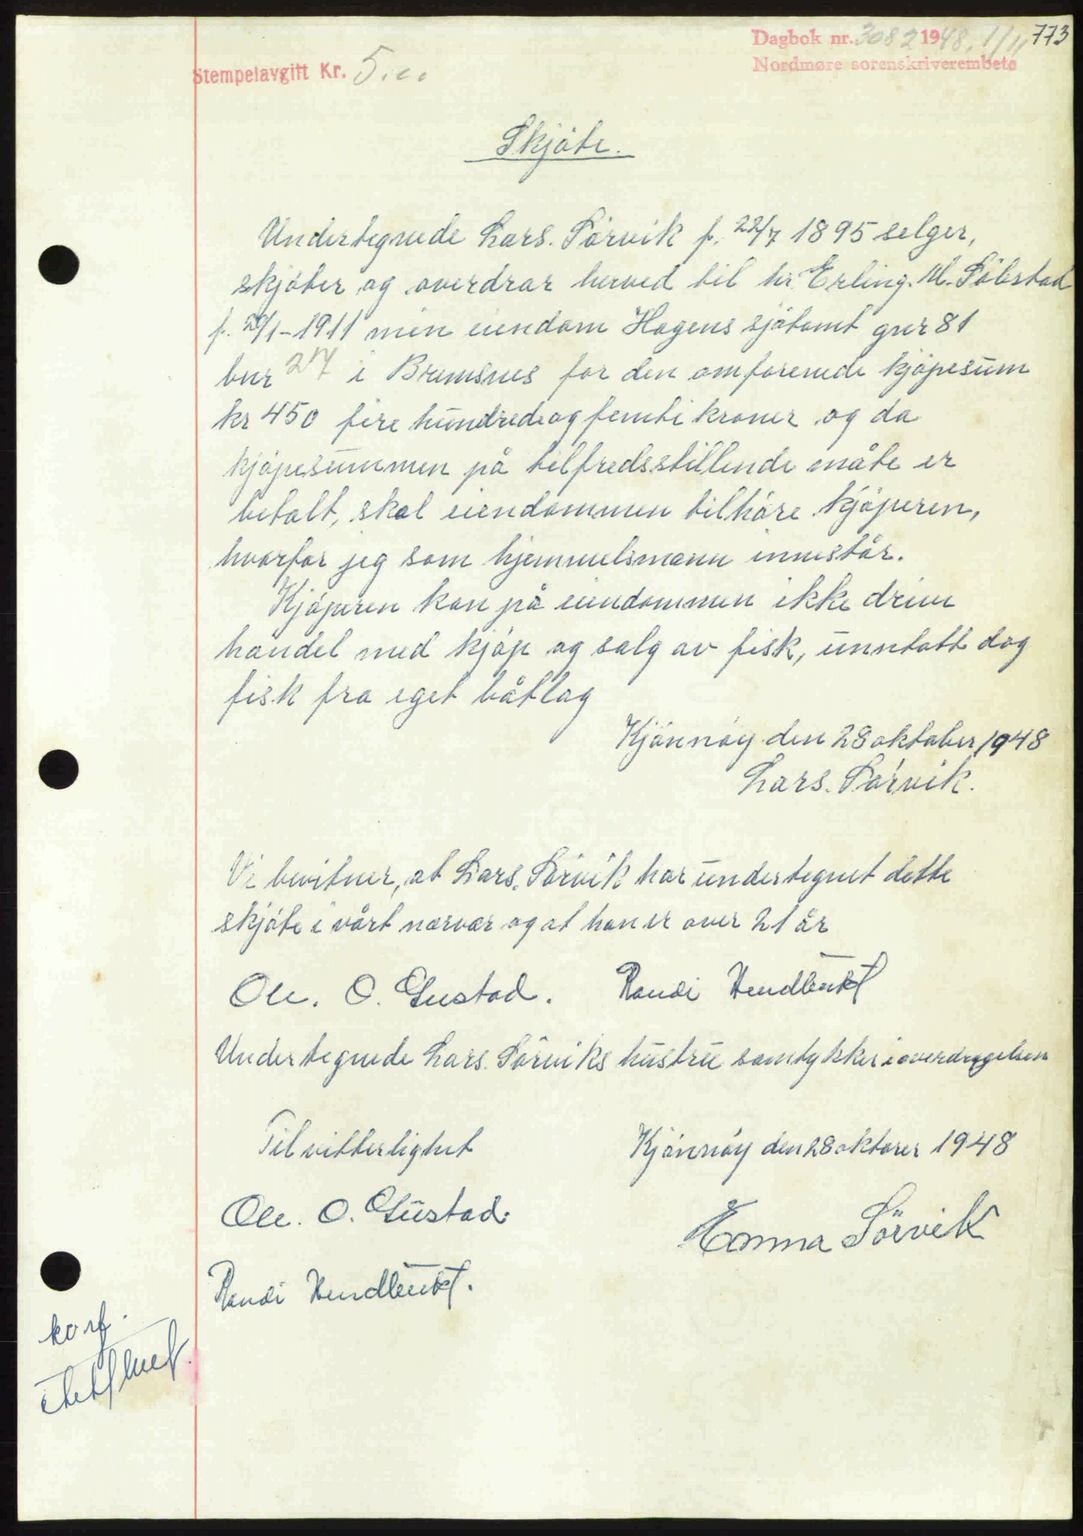 Dagbok nr. 3082 1948, 1/11 773
Nordmøre sorenskriverembete
Stempelavgift Kr. 5.00
Skjøte.
Undertegnede Lars. Sørvik f. 22/7 1895 selger,
skjøter og overdrar herved til hr. Erling. M. Sølstad
f. 29/1-1911 min eiendom Hagens sjøtomt gnr 81
bnr 217 i Bremsnes for den omforenede kjøpesum
kr 450 fire hundredeogfemti kroner og da
kjøpesummen på tilfredsstillende måte er
betalt, skal eiendommen tilhøre kjøperen,
hvorfor jeg som hjemmelsmann innestår.
Kjøperen kan på eiendommen ikke drive
handel med kjøp og salg av fisk, unntatt dog
fisk fra eget båtlag
Kjønnøy den 28 oktober 1948
Lars. Sørvik.
Vi bevitner, at Lars. Sørvik har undertegnet dette
skjøte i vårt nærvær og at han er over 21 år
Ole. O. Gustad. Randi
Undertegnede Lars. Sørviks hustru samtykker i overdragelsen
Til vitterlighet
Kjønnøy den 28 oktorer 1948
Ole. O. Gustad.
Emma Sörvik
Randi
korf.